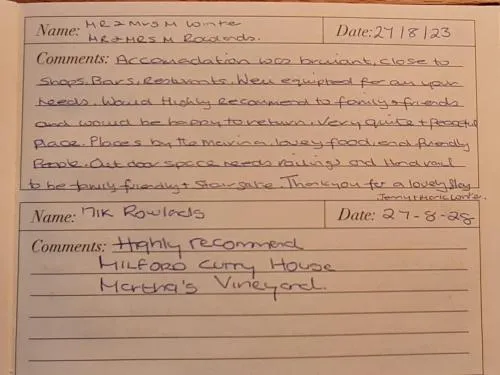 Name: MR & Mrs M Winter Date: 27/8/23
MR & MRS M Rowlands.
Comments: Accomedation was briuiant, close to
Shops, Bars, Resturants. Well equipted for all your
needs. Would Highly Recommend to family & friends
and would be happy to return. Very quite & peaceful
Place. Places by the Marina, lovey food, and friendly
People. Outdoor space needs railings and Handrail
to be family friendly & Stair gate. Thankyou for a lovely Stay
Jenny & Mark Winter.
Name: MK Rowlads Date: 27-8-28
Comments: Highly recommend
MILFORD Curry House
Martha's Vineyard.